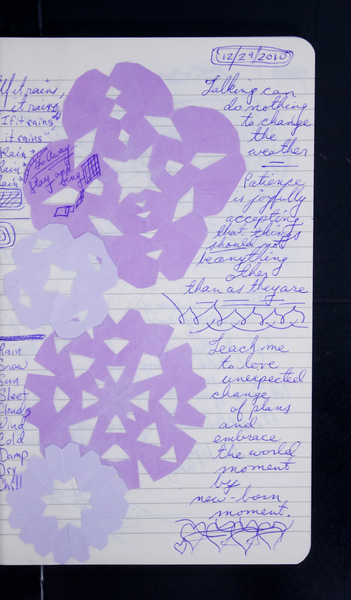 12/29/2010
If it rains,
it rains
"If it rains
it rains"
Rain
Rain
Rain
Go Away
Stay and
Sing
Talking can
do nothing
to change
the
weather
Patience
is joyfully
accepting
that things
should not
be anything
other
than as they are
Teach me
to love
unexpected
change
of plans
and
embrace
the world
moment
by
new-born
moment.
Rain
Snow
Sun
Sleet
Clouds
Wind
Cold
Damp
Dry
Chill